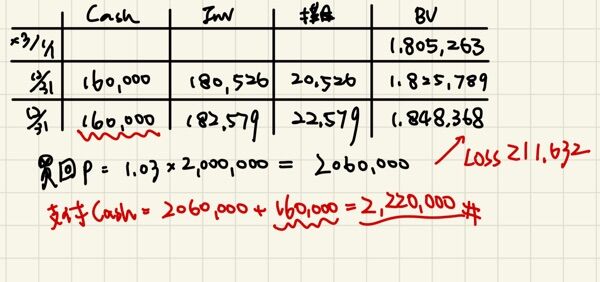 Cash Inv BV
×3/1/1 1.805,263
12/31 160,000 180,526 20,526 1.825,789
12/31 160,000 182,579 22,579 1.848,368
Loss 211,632
買回 P = 1.03 × 2,000,000 = 2060,000
支付 Cash = 2060,000 + 160,000 = 2,220,000 #